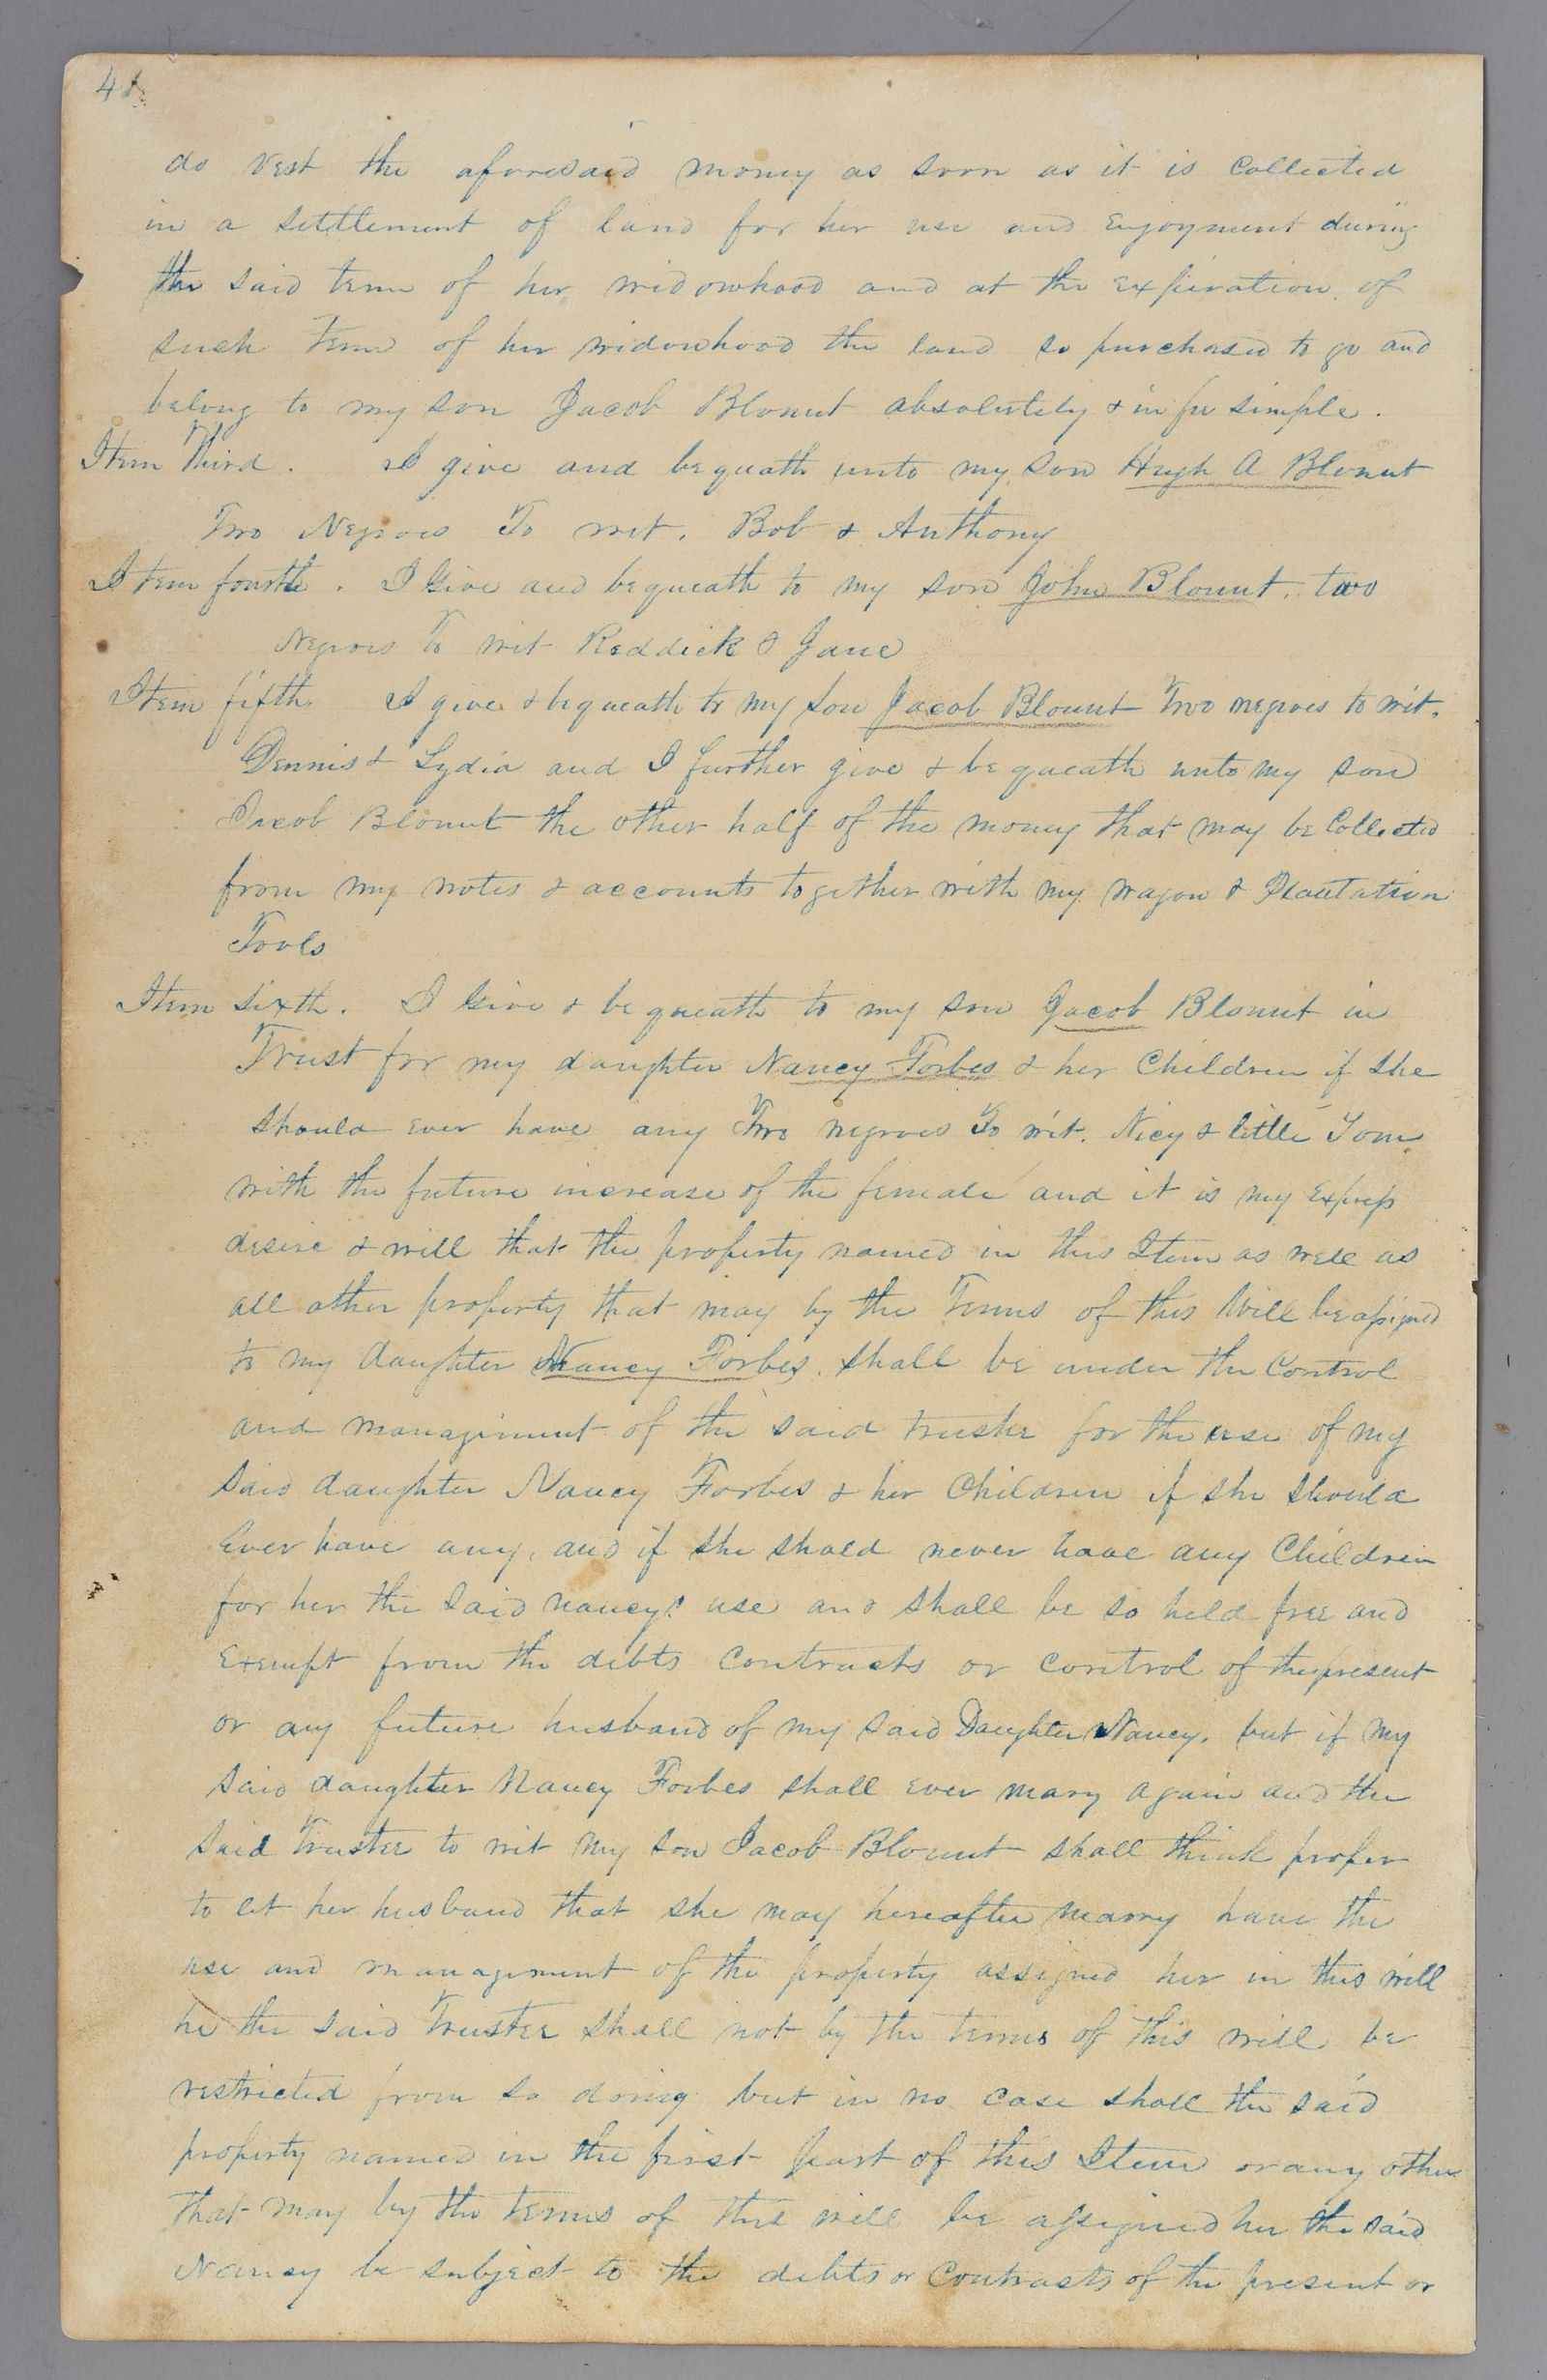 do vest the aforesaid money as soon as it is Collected
in a settlement of land for her use and Enjoyment during
the said term of her widowhood and at the Expiration of
such Term of her widowhood the land so purchased to go and
belong to my son Jacob Blount absolutely & in fee simple.
Item Third. I give and bequath unto my son Hugh A Blount
Two Negroes To wit. Bob & Anthony
Item fourth. I Give and bequeath to my son John Blount. two
Negroes To wit Reddick & Jane
Item fifth I give & bequeath to my son Jacob Blount Two negroes to wit.
Dennis & Lydia and I further give & bequeath unto my son
Jacob Blount the other half of the money that may be Collected
from my notes & accounts together with my wagon & Plantation
Tools
Item Sixth. I Give & bequeath to my son Jacob Blount in
Trust for my daughter Nancy Forbes & her Children if she
should ever have any Two negroes To wit. Nicy & little Tom
with the future increase of the female and it is my Express
desire & will that the property named in this Item as well as
all other property that may by the Terms of this Will be assigned
to my daughter Nancy Forbes. shall be under the Control
and management of the said trustee for the use of my
said daughter Nancy Forbes & her Children if she should
Ever have any, and if she shold never have any Children
for her the said nancy's use and shall be so held free and
Exempt from the debts Contracts or Control of the present
or any future husband of my said Daughter Nancy. but if my
said daughter Nancy Forbes shall ever mary again and the
said Trustee to wit my son Jacob Blount shall think proper
to let her husband that she may hereafter marry have the
use and management of the property assigned her in this will
he the said Trustee shall not by the terms of this will be
restricted from so doing but in no case shall the said
property named in the first part of this Item or any other
that may by the terms of this will be assigned her the said
Nancy be subject to the debts or Contracts of the present or